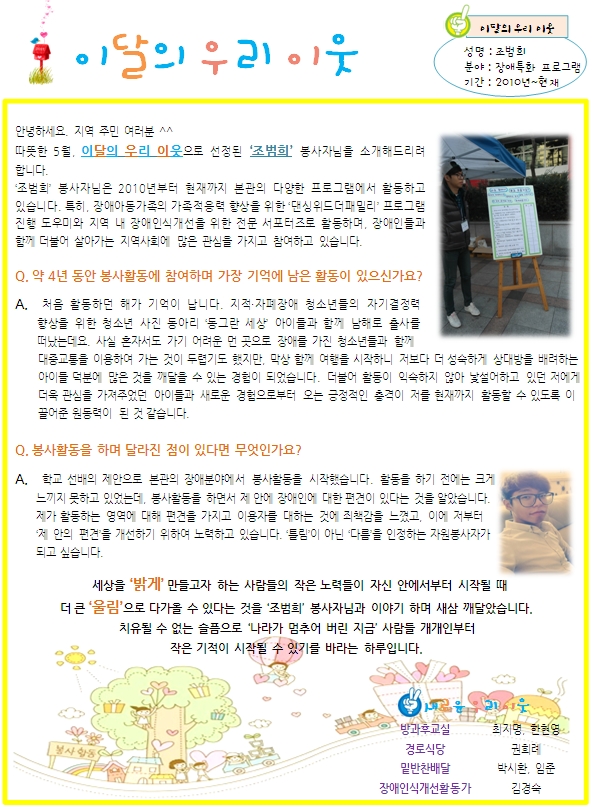 이달의 우리 이웃
이달의 우리 이웃
성명 : 조범희
분야 : 장애특화 프로그램
기간 : 2010년~현재
안녕하세요. 지역 주민 여러분 ^^
따뜻한 5월, 이달의 우리 이웃으로 선정된 ‘조범희’ 봉사자님을 소개해드리려
합니다.
‘조범희’ 봉사자님은 2010년부터 현재까지 본관의 다양한 프로그램에서 활동하고
있습니다. 특히, 장애아동가족의 가족적응력 향상을 위한 ‘댄싱위드더패밀리’ 프로그램
진행 도우미와 지역 내 장애인식개선을 위한 전문 서포터즈로 활동하며, 장애인들과
함께 더불어 살아가는 지역사회에 많은 관심을 가지고 참여하고 있습니다.
Q. 약 4년 동안 봉사활동에 참여하며 가장 기억에 남은 활동이 있으신가요?
A. 처음 활동하던 해가 기억이 납니다. 지적·자폐장애 청소년들의 자기결정력
향상을 위한 청소년 사진 동아리 ‘동그란 세상’ 아이들과 함께 남해로 출사를
떠났는데요. 사실 혼자서도 가기 어려운 먼 곳으로 장애를 가진 청소년들과 함께
대중교통을 이용하여 가는 것이 두렵기도 했지만, 막상 함께 여행을 시작하니 저보다 더 성숙하게 상대방을 배려하는
아이들 덕분에 많은 것을 깨달을 수 있는 경험이 되었습니다. 더불어 활동이 익숙하지 않아 낯설어하고 있던 저에게
더욱 관심을 가져주었던 아이들과 새로운 경험으로부터 오는 긍정적인 충격이 저를 현재까지 활동할 수 있도록 이
끌어준 원동력이 된 것 같습니다.
Q. 봉사활동을 하며 달라진 점이 있다면 무엇인가요?
A. 학교 선배의 제안으로 본관의 장애분야에서 봉사활동을 시작했습니다. 활동을 하기 전에는 크게
느끼지 못하고 있었는데, 봉사활동을 하면서 제 안에 장애인에 대한 편견이 있다는 것을 알았습니다.
제가 활동하는 영역에 대해 편견을 가지고 이용자를 대하는 것에 죄책감을 느꼈고, 이에 저부터
‘제 안의 편견’을 개선하기 위하여 노력하고 있습니다. ‘틀림’이 아닌 ‘다름’을 인정하는 자원봉사자가
되고 싶습니다.
세상을 ‘밝게’ 만들고자 하는 사람들의 작은 노력들이 자신 안에서부터 시작될 때
더 큰 ‘울림’으로 다가올 수 있다는 것을 ‘조범희’ 봉사자님과 이야기 하며 새삼 깨달았습니다.
치유될 수 없는 슬픔으로 ‘나라가 멈추어 버린 지금’ 사람들 개개인부터
작은 기적이 시작될 수 있기를 바라는 하루입니다.
봉사활동
새로운 우리 이웃
방과후교실 최지명, 한현영
경로식당 권희례
밑반찬배달 박시환, 임준
장애인식개선활동가 김경숙